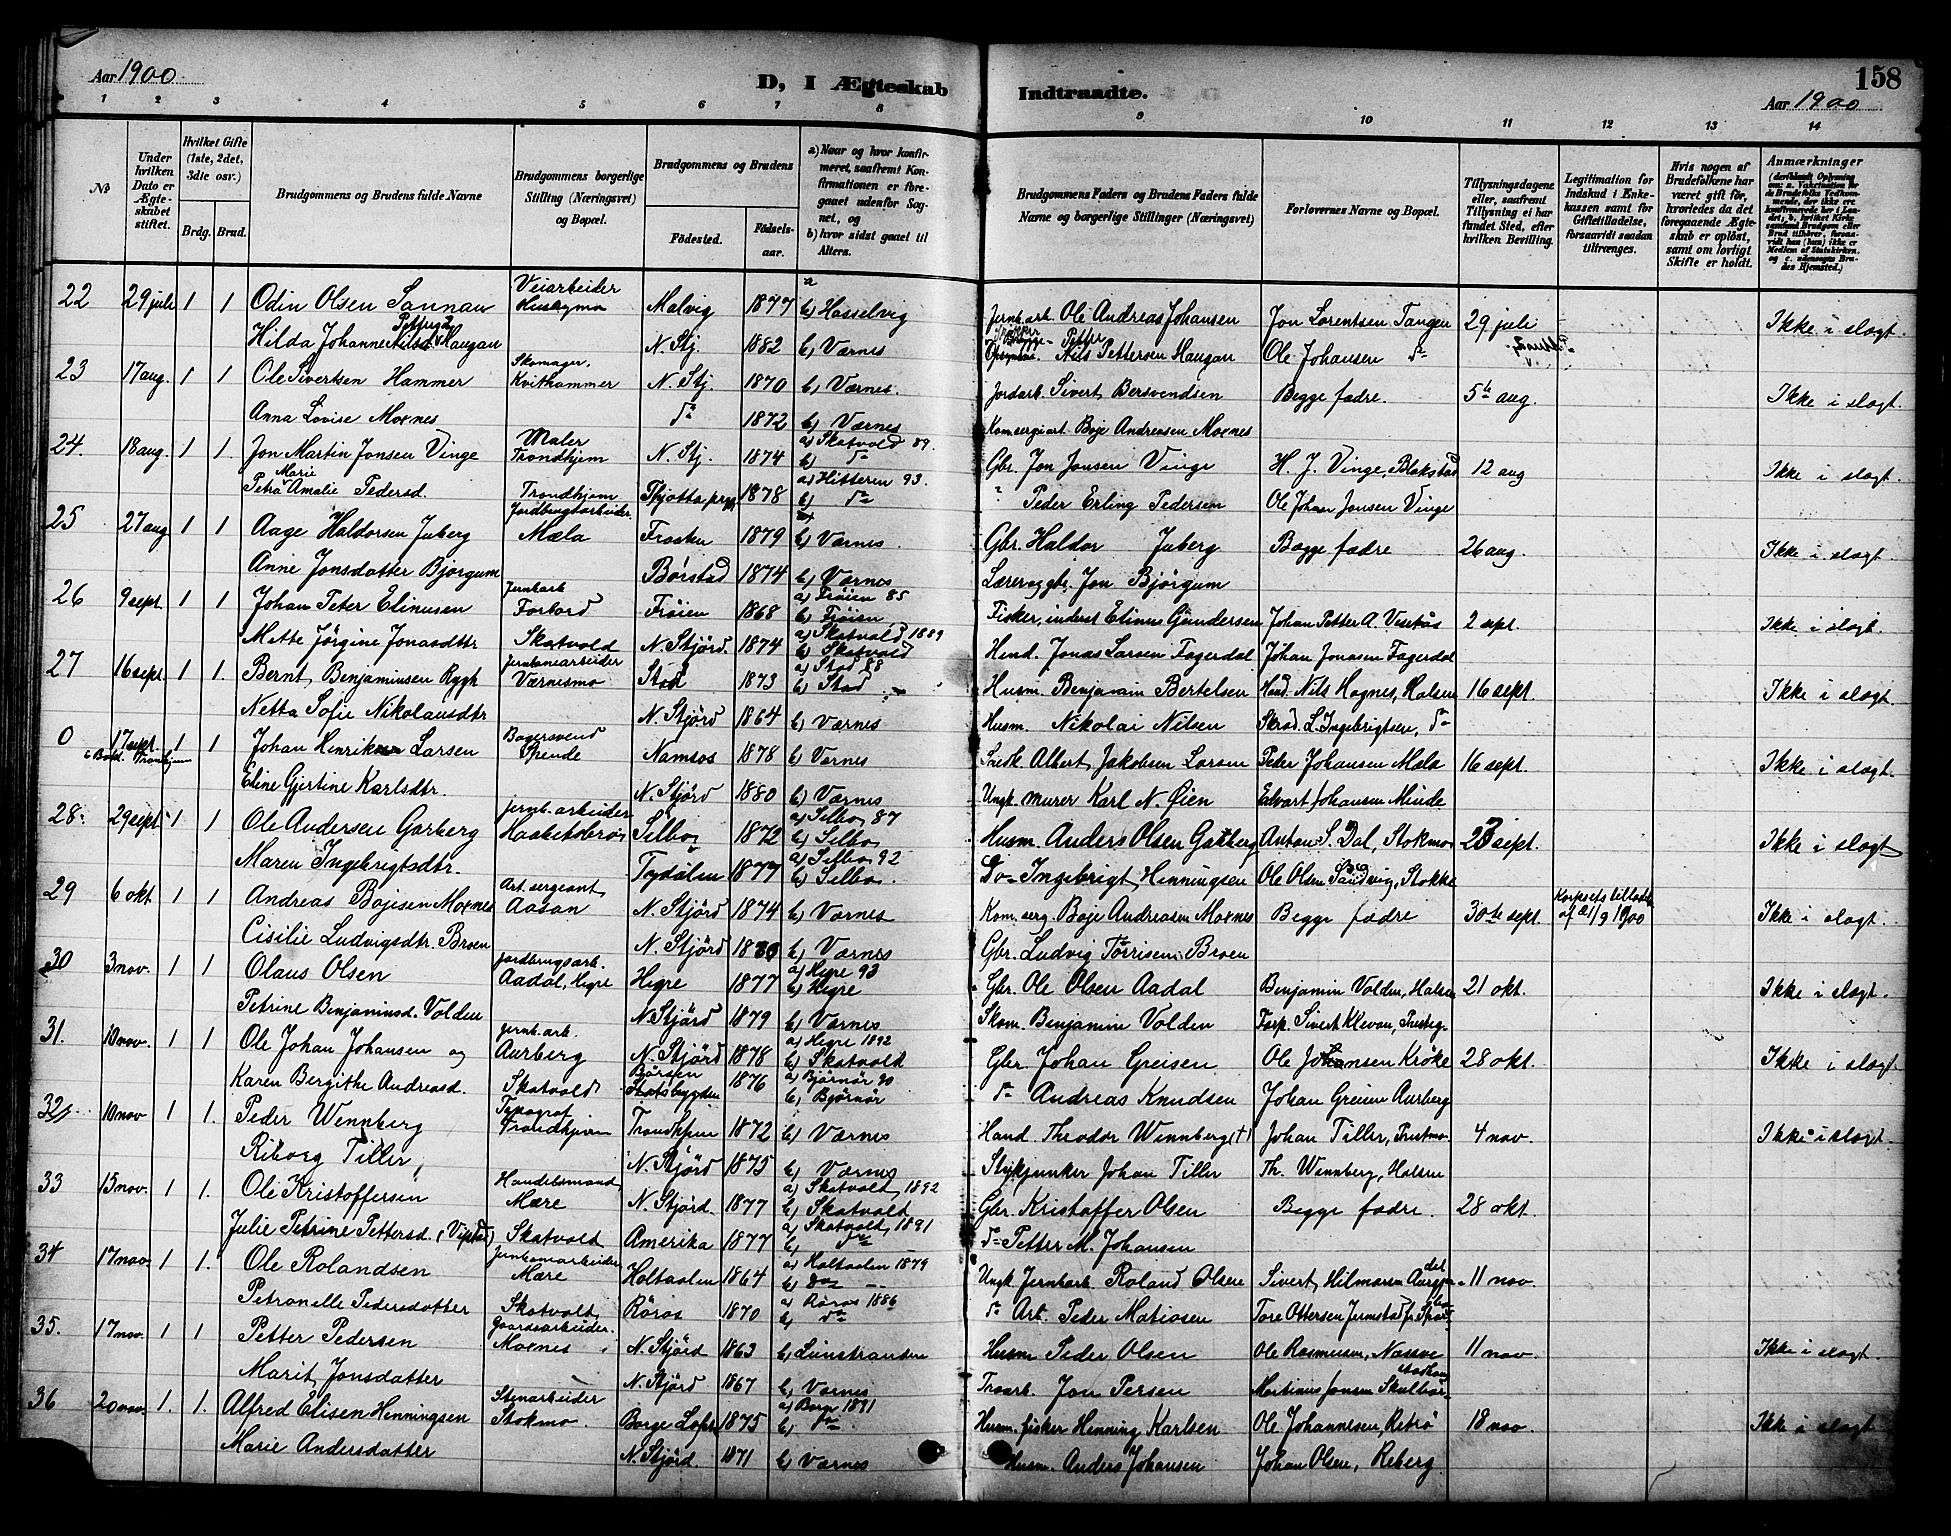 Aar 1900
D, I Ægteskab Indtraadte.
158
Aar 1900
1 2 3 4 5 6 7 8 9 10 11 12 13 14
No
Under hvilken Dato er Ægteskabet stiftet.
Hvilket Gifte (1ste, 2det, 3die osv.)
Brdg. Brud.
Brudgommens og Brudens fulde Navne
Brudgommens borgerlige Stilling (Næringsvei) og Bopæl.
Brudgommens og Brudens
Fødested.
Fødselsaar.
a) Naar og hvor konfirmeret, saafremt Konfirmationen er foregaaet udenfor Sognet, og
b) hvor sidst gaaet til Alters.
Brudgommens Faders og Brudens Faders fulde Navne og borgerlige Stillinger (Næringsvei)
Forlovernes Navne og Bopæl.
Tillysningsdagene eller, saafremt Tillysning ei har fundet Sted, efter hvilken Bevilling.
Legitimation for Indskud i Enkekassen samt for Giftetilladelse, forsaavidt saadan tiltrænges.
Hvis nogen af Brudefolkene har været gift før, hvorledes da det foregaaende Ægteskab er opløst, samt om lovligt Skifte er holdt.
Anmærkninger
22 29 juli 1 1 Odin Olsen Sannan Veiarbeider Malvig 1877 b) Hasselvig Jernb.arb. Ole Andreas Johansen Jon Lorentsen Tangen 29 juli Ikke i slægt
Hilda Johanne Haugan N. Stj. 1882 b) Værnes Nils Pettersen Haugan Ole Johansen do
23 17 aug. 1 1 Ole Sivertsen Hammer Skomager Kvithammer N. Stj. 1870 b) Værnes Jordarb. Sivert Bersvendsen Begge fædre. 5te aug Ikke i slægt.
Anna Lovise Moxnes do 1872 b) Værnes Boje Andreasen Moxnes
24. 18 aug. 1 1. Jon Martin Jonsen Vinge Maler Trondhjem N. Stj. 1874 a) Skatvold 89. b) do Gbr. Jon Jonsen Vinge H. J. Vinge, Blakstad 12 aug Ikke i slægt.
Petra Marie Amalie Pedersd. Trondhjem 1878 a) Hitteren 93. b) do Peder Erling Pedersen Ole Johan Jonsen Vinge
25 27 aug 1 1 Aage Haldorsen Juberg Jordbrugsarbeider Mæla Frosten 1879 b) Værnes. Gbr. Haldor Juberg Begge fædre 26 aug. Ikke i slægt
Anne Jonsdatter Bjørgum Børstad 1874 b) Værnes Jon Bjørgum
26 9 sept. 1 1 Johan Peter Elinusen Jernb.arb Forbord Frøien 1868 a) Frøien 85 b) Frøien Fisker, inderst Elinus Gundersen Johan Petter A. 2 sept. Ikke i slægt.
Mette Jørgine Jonasdtr Skatvold N. Stjørd. 1874 a) Skatvold 1889 b) Skatvold Jonas Larsen Fagerdal Johan Jonasen Fagerdal
27 16 sept. 1 1. Bernt Benjaminsen Rygh Jernbanearbeider Værnesmo Stod 1873 a) Stod 88 b) Stod Husm. Benjamin Bertelsen Hand. Nils Hognes, Halsen 16 sept Ikke i slægt.
Netta Sofie Nikolausdtr N. Stjørd 1864 b) Værnes Husm. Nikolai Nilsen Skræd. L. Ingebrigtsen, do
0 17 sept. 1 1 Johan Henrik Larsen Bagersvend Namsos 1878 b) Værnes Albert Jakobsen Larsen Peder Johansen Mæla 16 sept. Ikke i slægt.
Eline Gjertine Karlsdtr. N. Stjørd 1880 b) Værnes Ungk. murer Karl N. Øien Edvart Johansen Minde
28. 29 sept. 1 1 Ole Andersen Garberg jernb. arbeider Selbo 1872 a) Selbo 87 b) Selbo Husm. Anders Olsen Garberg Anton S. Dal, Stokmo 23 sept. Ikke i slægt
Maren Ingebrigtsdtr. Tydalen 1877 a) Selbo 92 b) Selbo. Do Ingebrigt Henningsen Ole Olsen Sandvig, Stokke
29 6 okt. 1 1 Andreas Bojesen Moxnes Art. sergeant Aasan N. Stjørd 1874 b) Værnes Kom. serg. Boje Andreasen Moxnes Begge fædre 30te sept. Ikke i slægt
Cisilie Ludvigsdtr. Broen N. Stjørd b) Værnes Gbr. Ludvig Broen
30 3 nov. 1 1 Olaus Olsen jordbrugsarb. Aadal, Hegre Hegre 1877 a) Hegre 93 b) Hegre Gbr. Ole Olsen Aadal Benjamin Volden, Halsen 21 okt. Ikke i slægt.
Petrine Benjaminsd. Volden N. Stjørd 1879 b) Værnes Skom. Benjamin Volden Forp. Sivert Klevan,
31. 10 nov. 1 1 Ole Johan Johansen og jernb. arb. Aurberg N. Stjørd 1878 a) Hegre 1892 b) Skatvold Gbr. Johan Greisen Ole Johansen Krøke 28 okt. Ikke i slægt.
Karen Bergithe Andreasd. Skatvold Børsen 1876 a) Bjørnør 90 b) Bjørnør do Andreas Knudsen Johan Greisen Aurberg
32 10 nov 1 1. Peder Wennberg Typograf Trondhjem Trondhjem 1872 b) Værnes Hand. Theodor Wennberg (+) Johan Tiller, 4 nov. Ikke i slægt.
Riborg Tiller, N. Stjørd 1875 b) Værnes Stykjunker Johan Tiller Th. Wennberg, Halsen
33 15 nov. 1 1. Ole Kristoffersen Handelsmand Mære N. Stjørd. 1877 a) Skatvold 1892 b) Skatvold Gbr. Kristoffer Olsen Begge fædre. 28 okt.
Julie Petrine Pettersd. Skatvold Amerika 1877 a) Skatvold 1891 b) do do Petter M. Johansen
34 17 nov. 1 1. Ole Rolandsen Jernbanearbeider Mære Holtaalen 1864 a) Holtaalen 1879 b) do Ungk. Jernb.arb. Roland Olsen Sivert Hilmarsen 11 nov.
Petronelle Pedersdatter Skatvold Røros 1870 a) Røros 1886 b) do do Arb. Peder Matiasen Tore Ottersen Jermstad
35. 17 nov. 1 1 Petter Pedersen Gaardsarbeider. Moxnes N. Stjørd 1863 b) Husm. Peder Olsen Ole Rasmussen, 11 nov. Ikke i slægt.
Marit Jonsdatter N. Stjørd 1867 b) Værnes Jon Persen Martinus Jonsen
36 20 nov. 1. 1. Alfred Elisen Henningsen Stenarbeider Stokmo. 1875 a) Borge 1891 b) do Husm. fisker Henning Karlsen Ole Johannesen, 18 nov. Ikke i slægt
Marie Andersdatter N. Stjørd. 1871 b) Værnes Husm. Anders Johansen Johan Olsen, Reberg.